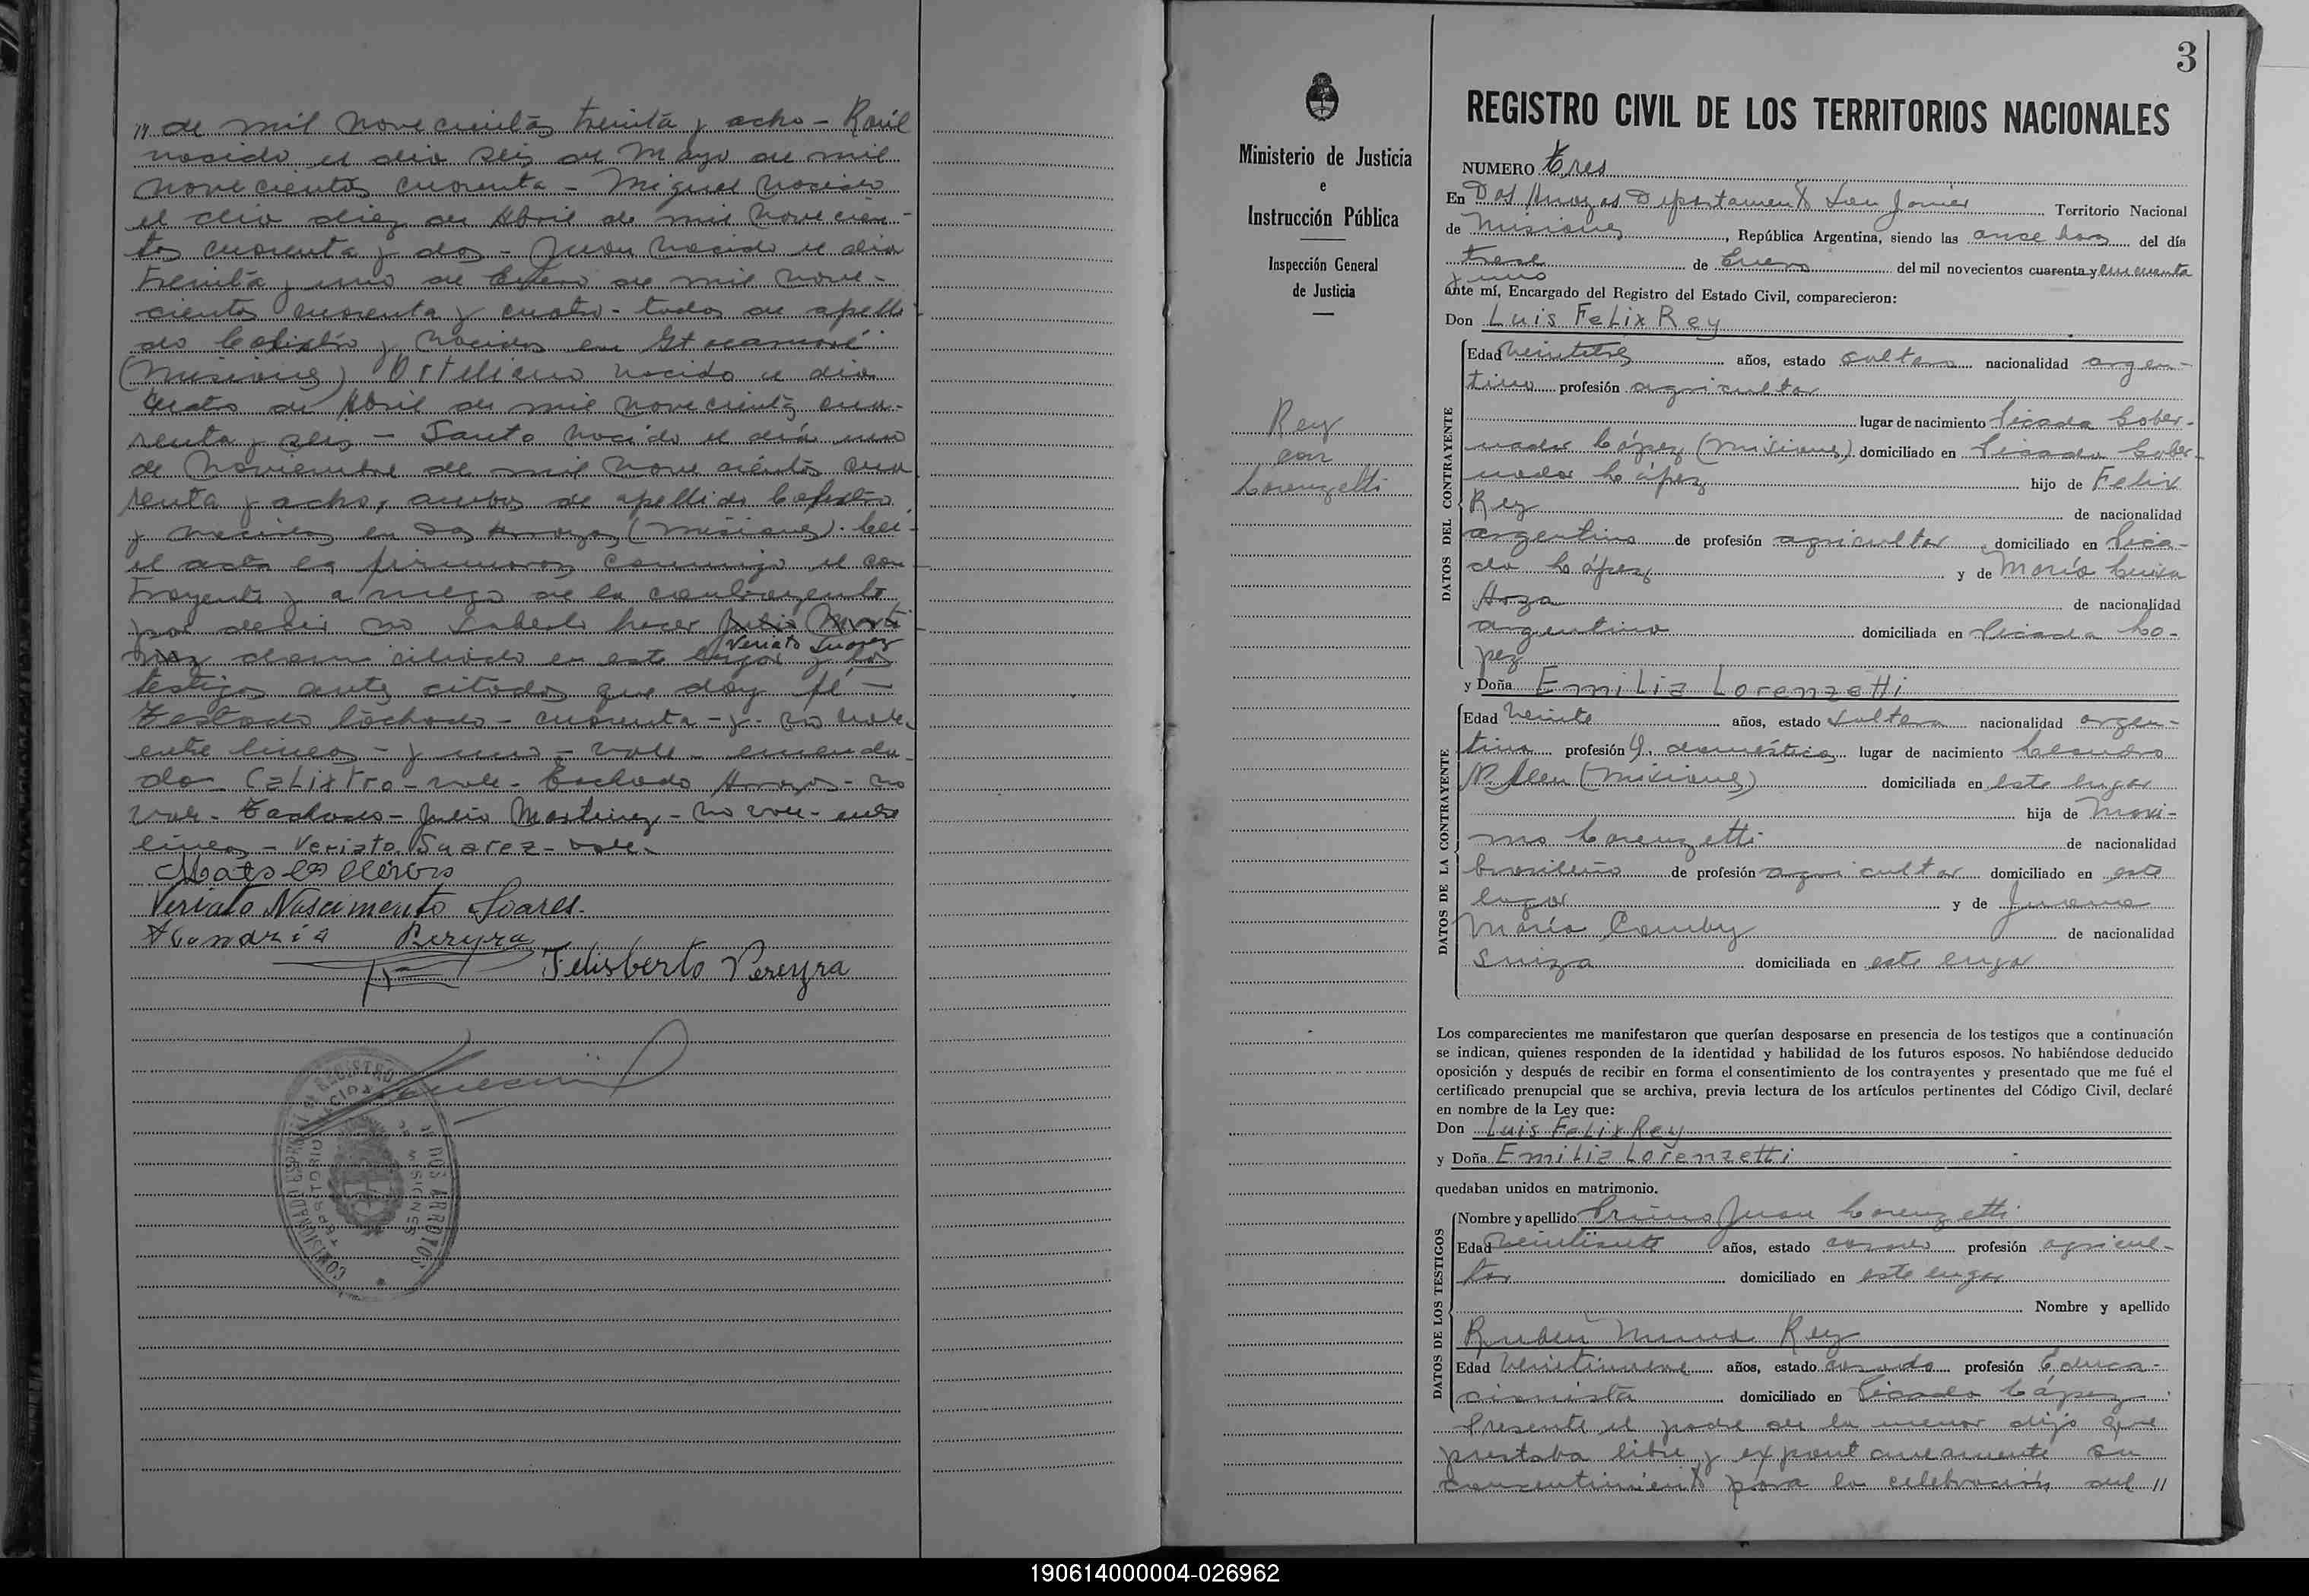 " de mil novecientos treinta y ocho - Raúl
nacido el dia seis de Mayo de mil
novecientos cuarenta - Miguel nacido
el dia diez de Abril de mil novecien-
tos cuarenta y dos - Juan nacido el dia
treinta y uno de Enero de mil nove-
cientos cuarenta y cuatro - todos de apelli-
do Calixtro y nacidos en
(Misiones) nacido el dia
cuatro de Abril de mil novecientos cua-
renta y seis - Santo nacido el dia uno
de Noviembre de mil novecientos cua
renta y ocho, ambos de apellido Calixtro
y nacidos en Dos Arroyos (Misiones). Lei-
el acta la firmaron conmigo el con
trayente y a ruego de la contrayente
por decir no saberlo hacer Julio Marti
Veriato Suarez
nez domiciliado en este lugar y los
testigos antes citados que doy fé -
Testado tachado - cuarenta - y - no vale
entre lineas - y uno - vale - enmenda
do - Calixtro - vale - Tachado Arroyos - no
vale - Tachado - Julio Martinez - no vale - entre
lineas - Veriato Suarez - vale -
Veriato Nascimento Soares.
Pereyra
Felisberto Pereyra
REGISTRO
DOS ARROYOS
TERRITORIO
MISIONES
3
Ministerio de Justicia
e
Instrucción Pública
Inspección General
de Justicia
Rey
con
Lorenzetti
REGISTRO CIVIL DE LOS TERRITORIOS NACIONALES
NUMERO tres
En Dos Arroyos Departamento San Javier Territorio Nacional
de Misiones, República Argentina, siendo las once horas del día
trece de Enero del mil novecientos cuarenta y cincuenta
y uno
ante mí, Encargado del Registro del Estado Civil, comparecieron:
Don Luis Felix Rey
DATOS DEL CONTRAYENTE
Edad veintitres años, estado soltero nacionalidad argen-
tino profesión agricultor
lugar de nacimiento Picada Gober-
nador López (Misiones) domiciliado en Picada Gober-
nador López hijo de Felix
Rey de nacionalidad
argentino de profesión agricultor, domiciliado en Pica-
da López y de María Luisa
Hoza de nacionalidad
argentina domiciliada en Picada Ló-
pez
y Doña Emilia Lorenzetti
DATOS DE LA CONTRAYENTE
Edad veinte años, estado soltera nacionalidad argen-
tina profesión Q. domésticos lugar de nacimiento Leandro
N. Alem (Misiones) domiciliada en este lugar
hija de Maxi-
mo Lorenzetti de nacionalidad
brasileño de profesión agricultor domiciliado en este
lugar y de Juana
María de nacionalidad
Suiza domiciliada en este lugar
Los comparecientes me manifestaron que querían desposarse en presencia de los testigos que a continuación
se indican, quienes responden de la identidad y habilidad de los futuros esposos. No habiéndose deducido
oposición y después de recibir en forma el consentimiento de los contrayentes y presentado que me fué el
certificado prenupcial que se archiva, previa lectura de los artículos pertinentes del Código Civil, declaré
en nombre de la Ley que:
Don Luis Felix Rey
y Doña Emilia Lorenzetti
quedaban unidos en matrimonio.
DATOS DE LOS TESTIGOS
Nombre y apellido Primo Juan Lorenzetti
Edad años, estado casado profesión agricul-
tor domiciliado en este lugar
Nombre y apellido
Rubén Rey
Edad veintinueve años, estado casado profesión Educa-
cionista domiciliado en Picada López
Presente el padre de la menor dijo que
prestaba libre y expontaneamente su
consentimiento para la celebración del "
190614000004-026962